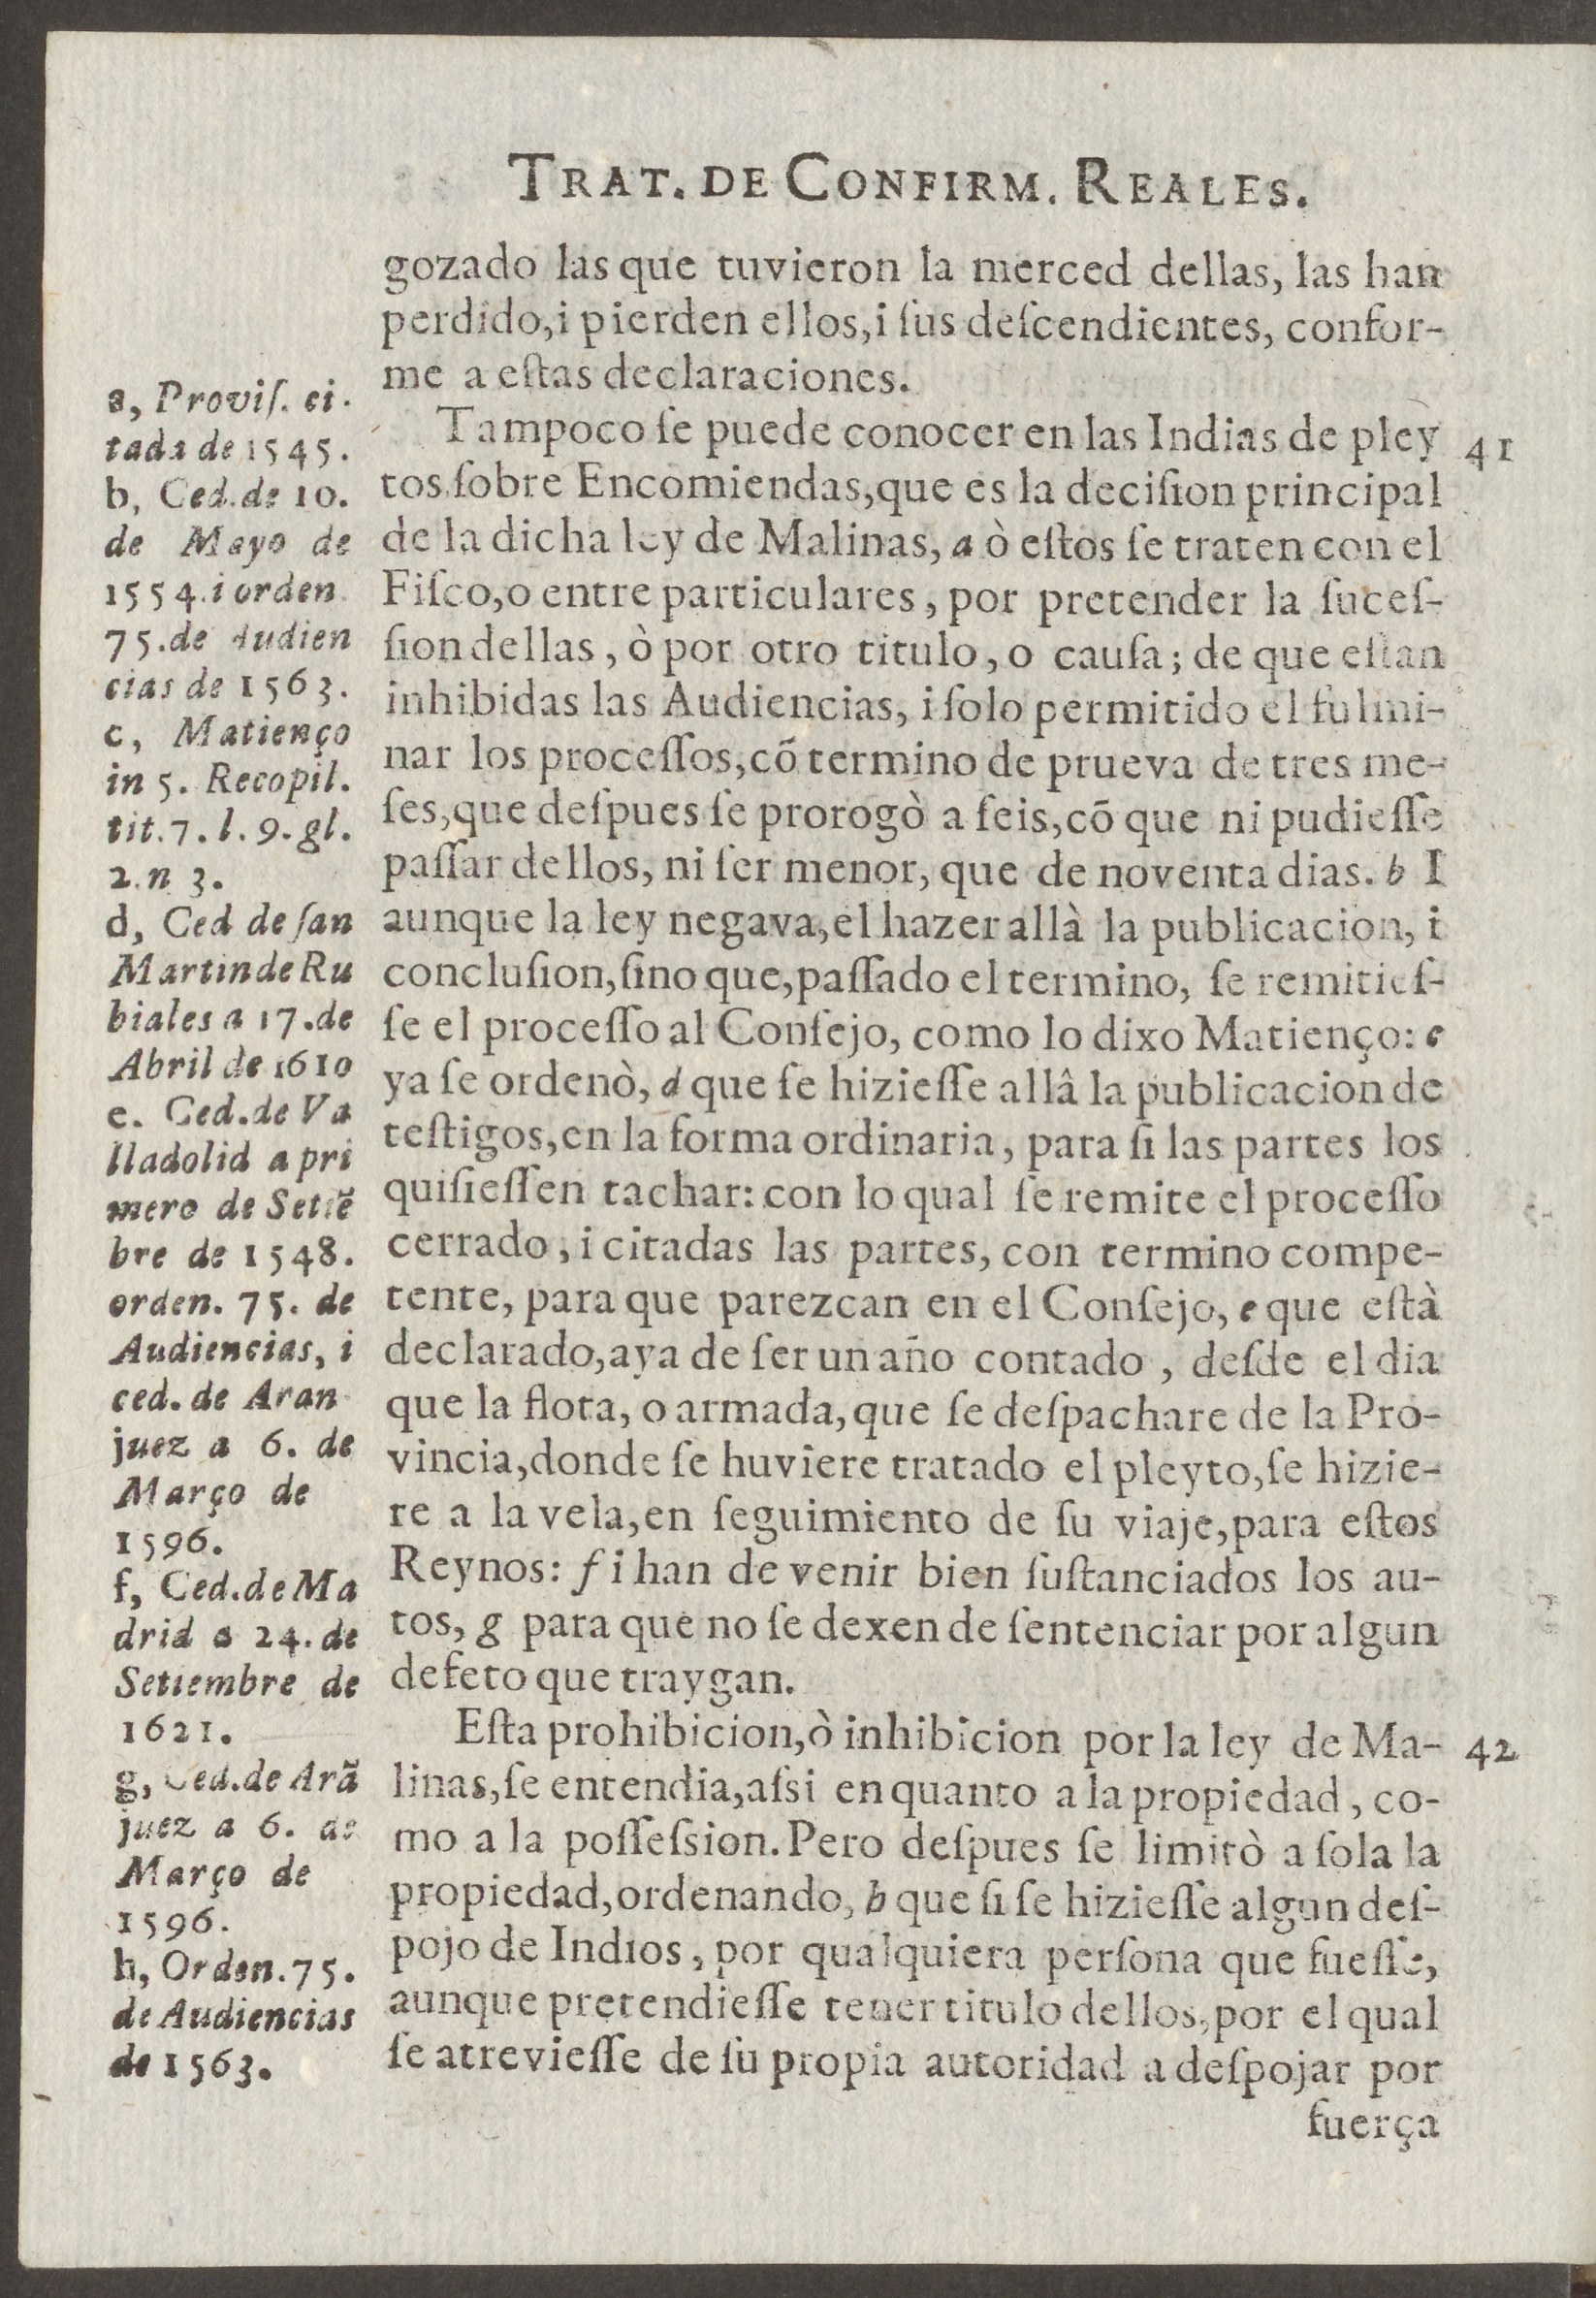 TRAT. DE CONFIRM. REALES.
gozado las que tuvieron la merced dellas, las han
perdido,i pierden ellos,i ſus deſcendientes, confor-
me a eſtas declaraciones.
Tampoco ſe puede conocer en las Indias de pley
41
tos ſobre Encomiendas,que es la deciſion principal
de la dicha ley de Malinas, a ò eſtos ſe traten con el
Fiſco,o entre particulares, por pretender la ſuceſ-
ſion dellas, ò por otro titulo, o cauſa; de que eſtan
inhibidas las Audiencias, i ſolo permitido el fulmi-
nar los proceſſos,cõ termino de prueva de tres me-
ſes,que deſpues ſe prorogò a ſeis,cõ que ni pudieſſe
paſſar dellos, ni ſer menor, que de noventa dias. b I
aunque la ley negava,el hazer allà la publicacion, i
concluſion,ſino que,paſſado el termino, ſe remitieſ-
ſe el proceſſo al Conſejo, como lo dixo Matienço: c
ya ſe ordenò, d que ſe hizieſſe allâ la publicacion de
teſtigos,en la forma ordinaria, para ſi las partes los
quiſieſſen tachar: con lo qual ſe remite el proceſſo
cerrado, i citadas las partes, con termino compe-
tente, para que parezcan en el Conſejo, e que eſtà
declarado,aya de ſer un año contado, deſde el dia
que la flota, o armada, que ſe deſpachare de la Pro-
vincia,donde ſe huviere tratado el pleyto,ſe hizie-
re a la vela,en ſeguimiento de ſu viaje,para eſtos
Reynos: f i han de venir bien ſuſtanciados los au-
tos, g para que no ſe dexen de ſentenciar por algun
defeto que traygan.
Eſta prohibicion,ò inhibicion por la ley de Ma-
42
linas,ſe entendia,aſsi en quanto a la propiedad, co-
mo a la poſſeſsion. Pero deſpues ſe limitò a ſola la
propiedad,ordenando, h que ſi ſe hizieſſe algun deſ-
pojo de Indios, por qualquiera perſona que fueſſe,
aunque pretendieſſe tener titulo dellos,por el qual
ſe atrevieſſe de ſu propia autoridad a deſpojar por
fuerça
a, Proviſ. ci-
tada de 1545.
b, Ced.de 10.
de Mayo de
1554.i orden
75.de Audien
cias de 1563.
c, Matienço
in 5. Recopil.
tit.7.l.9.gl.
2.n 3.
d, Ced de ſan
Martin de Ru
biales a 17.de
Abril de 1610
e. Ced.de Va
lladolid a pri
mero de Setiẽ
bre de 1548.
orden. 75. de
Audiencias, i
ced. de Aran
juez a 6. de
Março de
1596.
f, Ced.de Ma
drid a 24. de
Setiembre de
1621.
g, Ced.de Arã
juez a 6. de
Março de
1596.
h, Orden.75.
de Audiencias
de 1563.